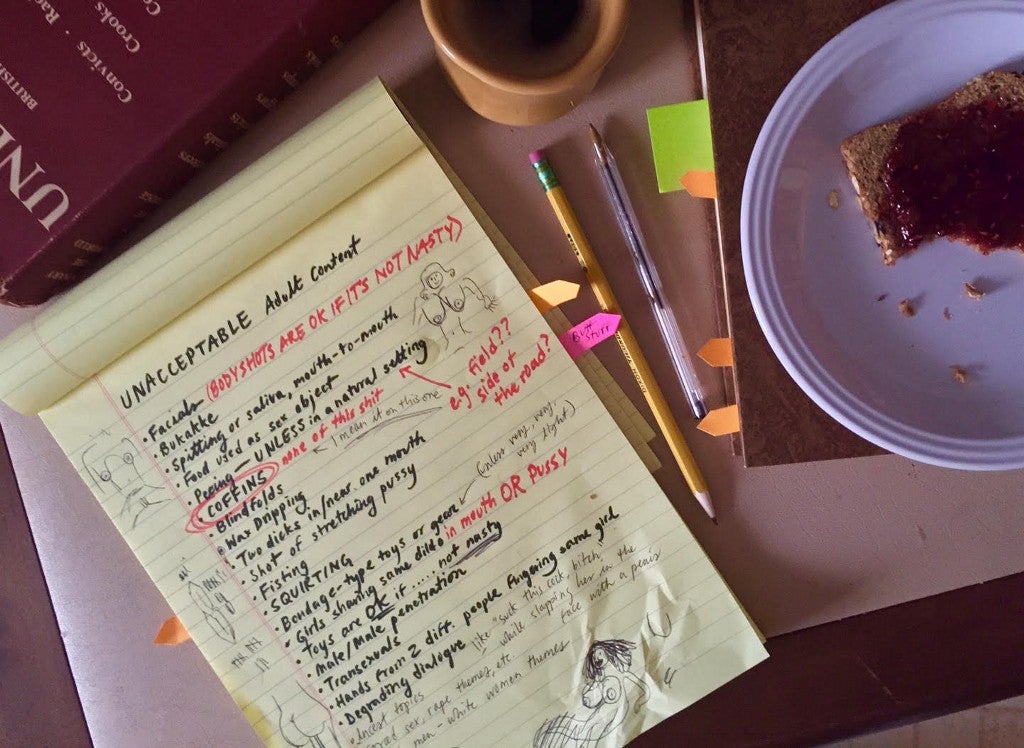 UNACCEPTABLE Adult Content
(BODYSHOTS ARE OK IF IT'S NOT NASTY)
• Facials
• Bukakke
• Spitting or saliva, mouth-to-mouth
• Food used as sex object
• Peeing - UNLESS in a natural setting
e.g. field??
side of
the road?
• COFFINS none of this shit
I mean it on this one
• Blindfolds
• Wax Dripping
• Two dicks in/near one mouth
• Shot of stretching pussy
• Fisting
• SQUIRTING
• Bondage-type toys or gear
(unless very, very,
very light)
• Girls sharing same dildo in mouth OR PUSSY
• Toys are OK if..... not nasty
• Male/male penetration
• Transexuals
• Hands from 2 diff. people fingering same girl
• Degrading dialogue like "suck this cock, bitch,"
while slapping her in the
face with a penis
• Incest topics
sex, rape themes, etc.
men - white women themes
Butt
stuff
Convicts •
Crooks
BRITISH
UN